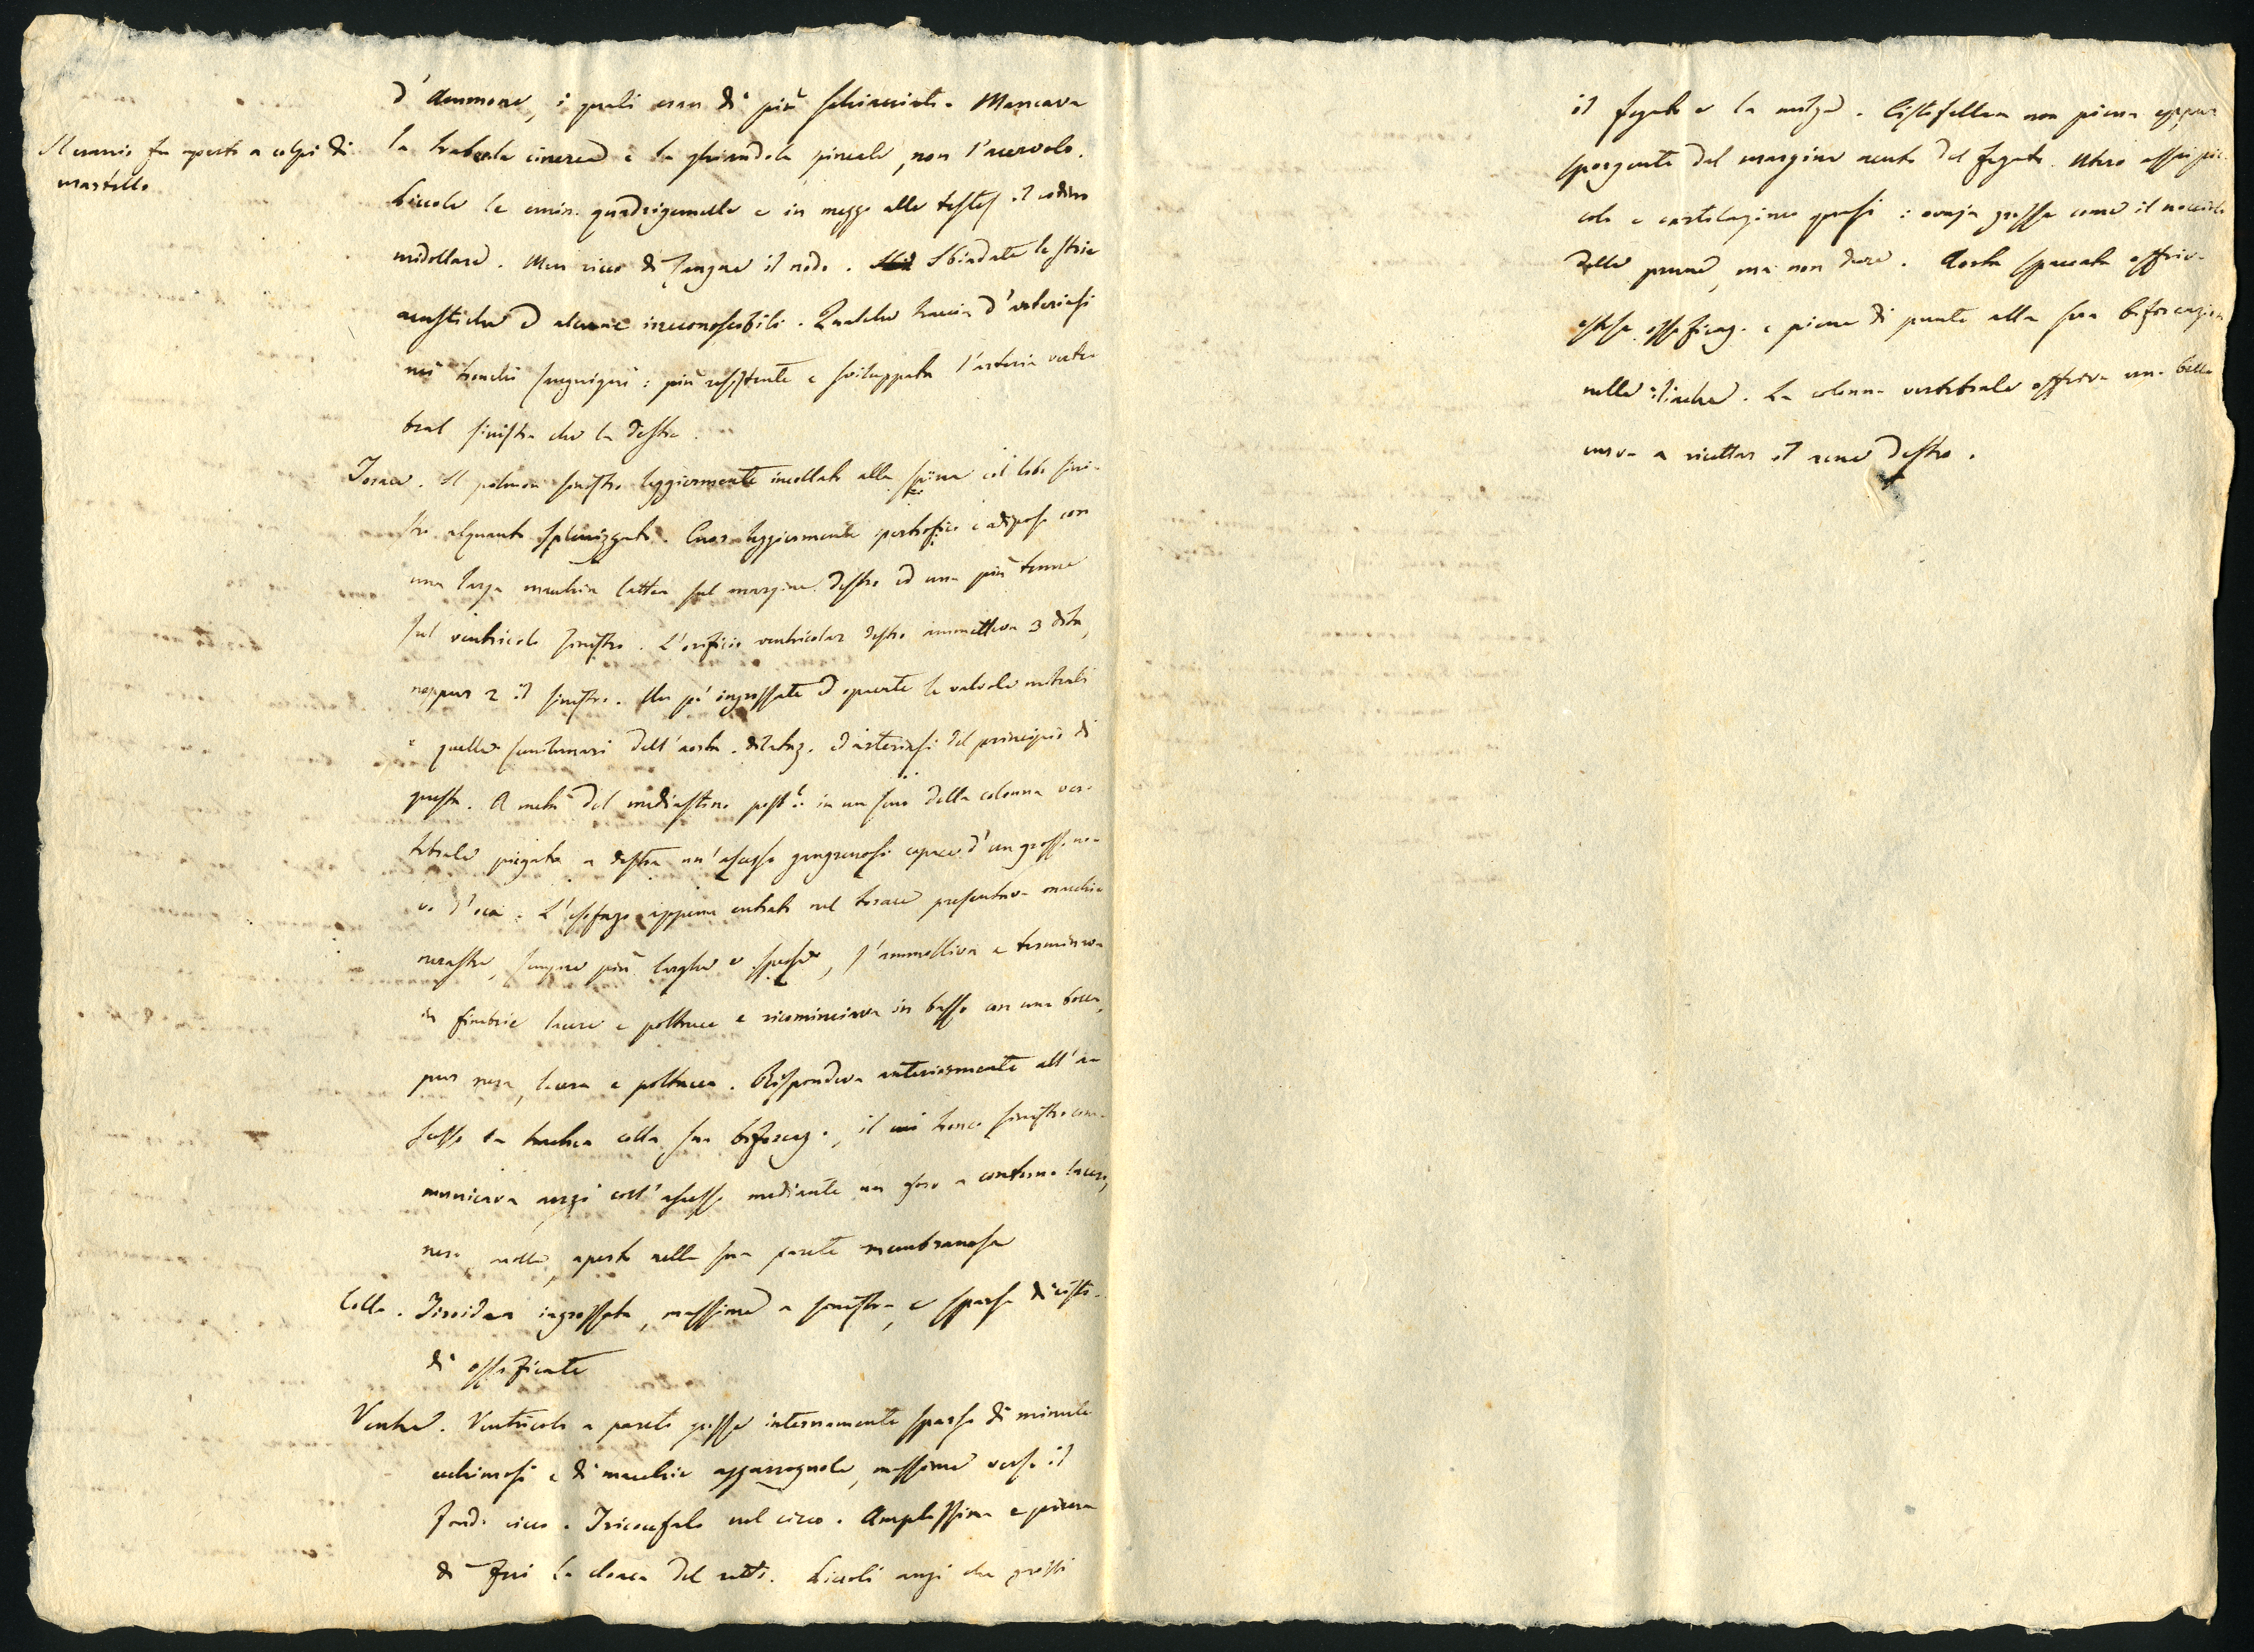 Il cranio fu aperto a colpi di
martello
d'Ammone, i quali eran di più schiacciati. Mancava
la trabecola cinerea e la ghiandola pineale, non l'acervolo.
Piccole le emin. quadrigemelle e in mezzo alle testes il codino
midollare. Men ricco di sangue il nodo. Sbiadate le strie
acustiche ed alcune irreconoscibili. Qualche traccia d'arteriasi
nei tronchi sanguigni: più resistente e sviluppata l'arteria verte
bral sinistra che la destra.
Torace. Il polmon sinistro leggiermente incollato alla spina col lobo sini-
stro alquanto splenizzato. Cuor leggiermente ipertrofico e adiposo con
una larga macchia lattea sul margine destro ed una più tenue
sul ventricolo sinistro. L'orificio ventricolar destro immetteva 3 dita,
neppur 2 il sinistro. Un po' ingrossate ed opacate le valvole mitrali
e quelle semilunari dell'aorta. dilataz. ed arteriasi del principio di
questa. A metà del mediastino post.e in un seno della colonna ver-
tebrale piegata a destra un'ascesso gangrenoso capace d'un grosso uo-
vo d'oca. L'esofago appena entrato nel torace presentava macchie
nerastre, sempre più larghe e spesse, s'ammolliva e terminava
in fimbrie lacere e poltacee e ricominciava in basso con una bocca,
pur nera, lacera e poltacea. Rispondeva anteriormente all'a-
scesso la trachea colla sua biforcaz., il cui tronco sinistro com-
municava anzi coll'ascesso mediante un foro a contorno lacero,
nero, molle, aperto nella sua parete membranosa
Collo. Tiroidea ingrossata, massime a sinistra, e sparsa di cisti-
di ossificate
Ventre. Ventricolo a pareti grosse internamente sparso di minute
echimosi e di macchie, massime verso il
fondo cieco. Tricocefalo nel cieco. Amplissima e piena
di feci la cloaca del retto. Piccoli anzi che grossi
il fegato e la milza. Cistifellea non piena eppur
sporgente dal margine acuto del fegato. Utero assai pic-
colo e cartilagineo quasi: ovaja grosse come il nocciolo
delle prune, ma non dure. Aorta spaccata offriva
estese ossificaz. e piene di punte alla sua biforcazion
nelle iliache. La colonna vertebrale offriva una bella
curva a ricettar il rene destro.